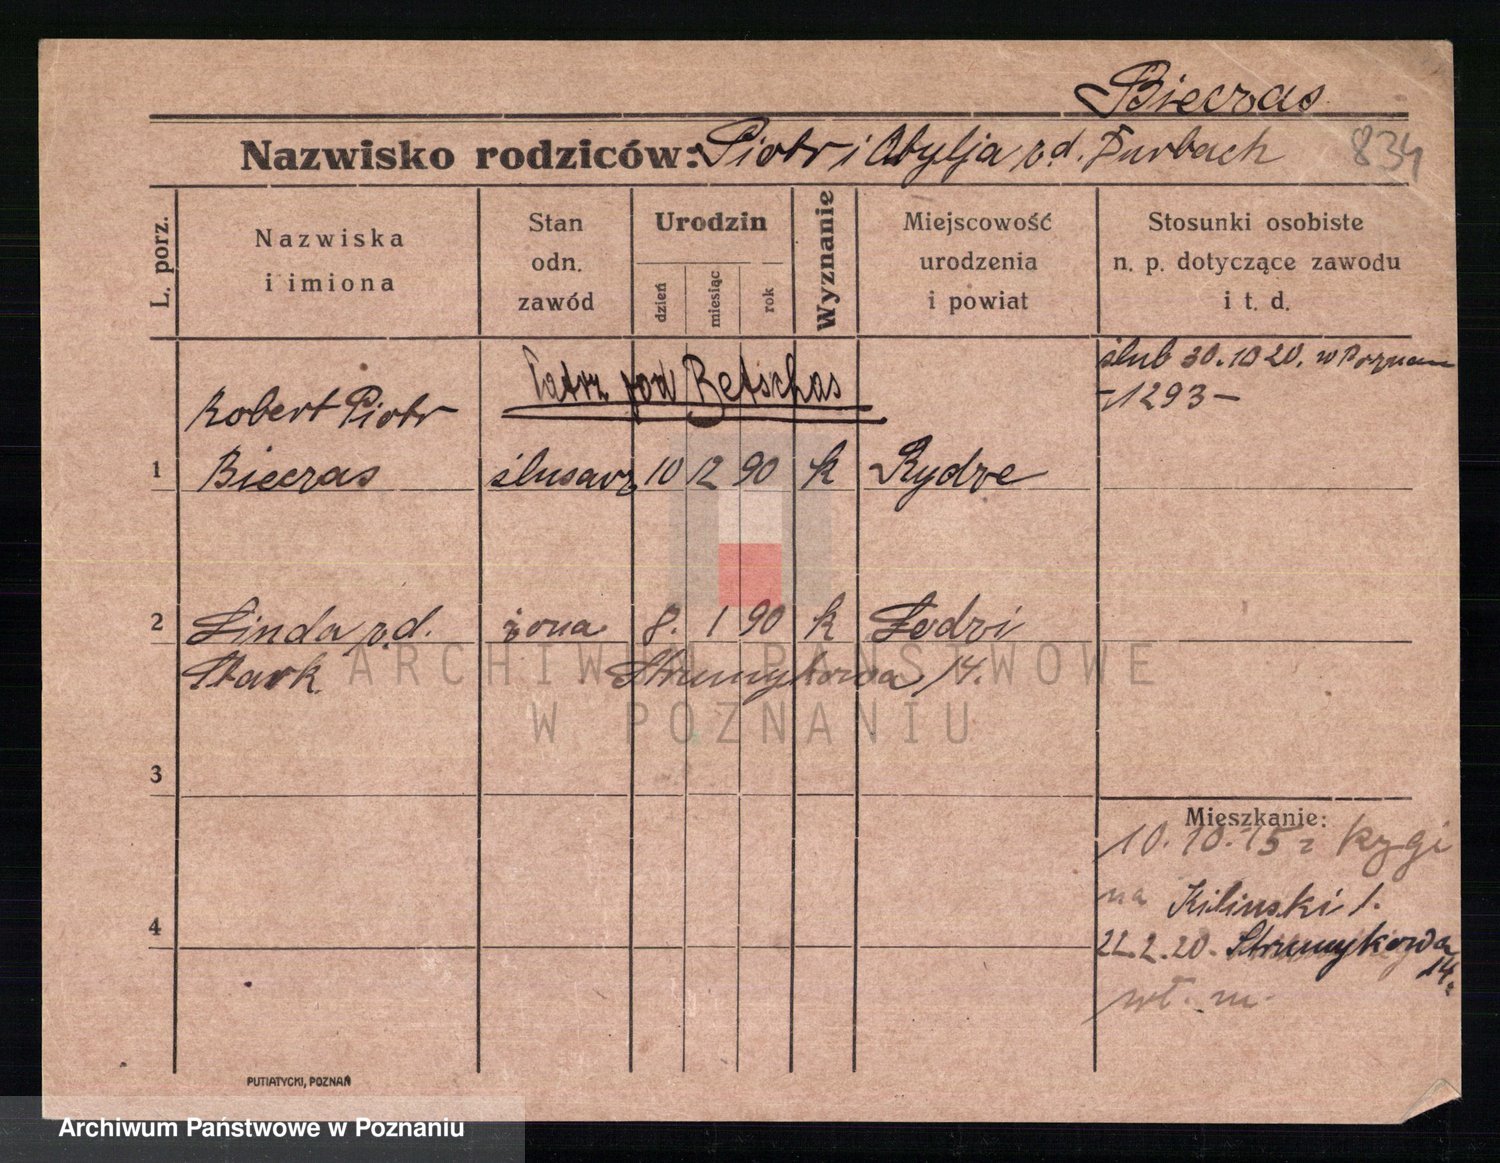 Bieczas
Nazwisko rodziców: Piotr i Otylja z d. Durbach
834
L. porz.
Nazwiska
i imiona
Stan
odn.
zawód
Urodzin
dzień
miesiąc
rok
Wyznanie
Miejscowość
urodzenia
i powiat
Stosunki osobiste
n. p. dotyczące zawodu
i t. d.
Patrz pod Betschas
ślub 30.10 20. w Poznan
-1293-
Robert Piotr
1 Bieczas ślusarz 10 12 90 k Rydze
2 Linda z d. żona 8. 1 90 k Łodzi
Stark Strumykowa 14.
3
Mieszkanie:
10.10.15
na Kilinski 1.
4
22.2.20. Strumykowa
14.
wł. m.
PUTIATYCKI, POZNAŃ
ARCHIWUM PAŃSTWOWE
W POZNANIU
Archiwum Państwowe w Poznaniu